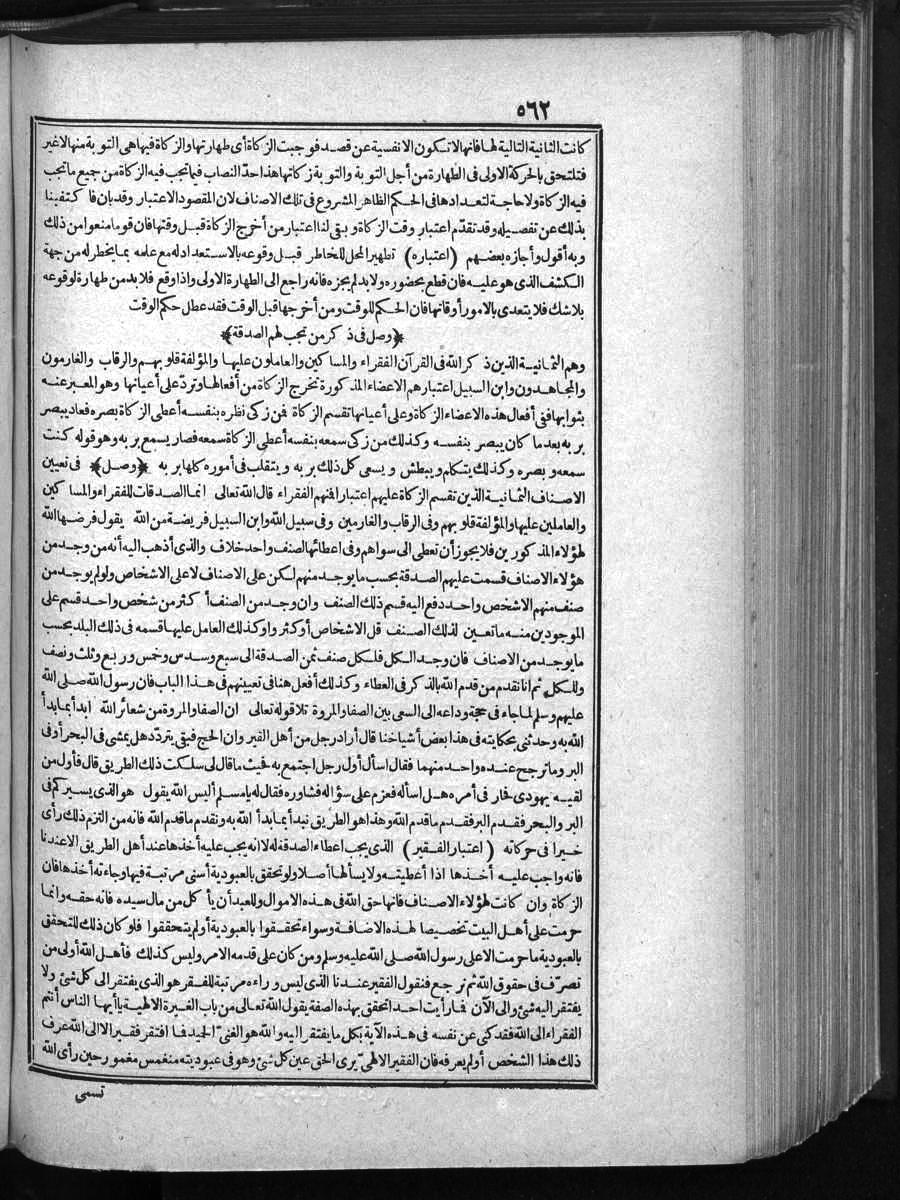 ٥٦٢
كانت الثانية التالية لها فانها لا تكون الا نفسية عن قصد فوجبت الزكاة أى طهارتها والزكاة فيها هى التوبة منها لا غير
فتلتحق بالحركة الاولى فى الطهارة من أجل التوبة والتوبة زكاتها هذا حدّ النصاب فيما تجب فيه الزكاة من جميع ما تجب
فيه الزكاة ولا حاجة لتعدادها فى الحكم الظاهر المشروع فى تلك الاصناف لان المقصود الاعتبار وقد بان فاكتفينا
بذلك عن تفصيله وقد تقدّم اعتبار وقت الزكاة وبقى لنا اعتبار من أخرج الزكاة قبل وقتها فان قوما منعوا من ذلك
وبه أقول وأجازه بعضهم (اعتباره) تطهير المحل للخاطر قبل وقوعه بالاستعداد له مع علمه بما يخطر له من جهة
الكشف الذى هو عليه فان قطع بحضوره ولا بد لم يجزه فانه راجع الى الطهارة الاولى واذا وقع فلا بد من طهارة لوقوعه
بلا شك فلا يتعدى بالامور أوقاتها فان الحكم للوقت ومن أخرجها قبل الوقت فقد عطل حكم الوقت
﴿وصل فى ذكر من تجب لهم الصدقة﴾
وهم الثمانية الذين ذكر الله فى القرآن الفقراء والمساكين والعاملون عليها والمؤلفة قلوبهم والرقاب والغارمون
والمجاهدون وابن السبيل اعتبارهم الاعضاء المذكورة تخرج الزكاة من أفعالها وتردّ على أعيانها وهو المعبر عنه
بثوابها ففى أفعال هذه الاعضاء الزكاة وعلى أعيانها تقسم الزكاة فمن زكى نظره بنفسه أعطى الزكاة بصره فعاد يبصر
بربه بعد ما كان يبصر بنفسه وكذلك من زكى سمعه بنفسه أعطى الزكاة سمعه فصار يسمع بربه وهو قوله كنت
سمعه وبصره وكذلك يتكلم ويبطش ويسعى كل ذلك بربه ويتقلب فى أموره كلها بربه ﴿وصل﴾ فى تعيين
الاصناف الثمانية الذين تقسم الزكاة عليهم اعتبارا فمنهم الفقراء قال الله تعالى انما الصدقات للفقراء والمساكين
والعاملين عليها والمؤلفة قلوبهم وفى الرقاب والغارمين وفى سبيل الله وابن السبيل فريضة من الله يقول فرضها الله
لهؤلاء المذكورين فلا يجوز أن تعطى الى سواهم وفى اعطائها لصنف واحد خلاف والذى أذهب اليه أنه من وجد من
هؤلاء الاصناف قسمت عليهم الصدقة بحسب ما يوجد منهم لكن على الاصناف لا على الاشخاص ولو لم يوجد من
صنف منهم الا شخص واحد دفع اليه قسم ذلك الصنف وان وجد من الصنف أكثر من شخص واحد قسم على
الموجودين منه ما تعين لذلك الصنف قل الاشخاص أو كثروا وكذلك العامل عليها قسمه فى ذلك البلد بحسب
ما يوجد من الاصناف فان وجد الكل فلكل صنف ثمن الصدقة الى سبع وسدس وخمس وربع وثلث ونصف
وللكل ثم انا نقدم من قدم الله بالذكر فى العطاء وكذلك أفعل هنا فى تعيينهم فى هذا الباب فان رسول الله صلى الله
عليه وسلم لما جاء فى حجة وداعه الى السعى بين الصفا والمروة تلا قوله تعالى ان الصفا والمروة من شعائر الله ابدأ بما بدأ
الله به وحدثنى بحكايته فى هذا بعض أشياخنا قال أراد رجل من أهل القير وان الحج فبقى يتردّد هل يمشى فى البحر أو فى
البر وما ترجح عنده واحد منهما فقال اسأل أول رجل اجتمع به فحيث ما قال لى سلكت ذلك الطريق قال فأول من
لقيه يهودى فحار فى أمره هل اسأله فعزم على سؤاله فشاوره فقال له يا مسلم أليس الله يقول هو الذى يسيركم فى
البر والبحر فقدم البر فقدم ما قدم الله وهذا هو الطريق نبدأ بما بدأ الله به ونقدم ما قدم الله فانه من التزم ذلك رأى
خيرا فى حركاته (اعتبار الفقير) الذى يجب اعطاء الصدقة له لا انه يجب عليه أخذها عند أهل الطريق الا عندنا
فانه واجب عليه أخذها اذا أعطيته ولا يسألها أصلا ولو تحقق بالعبودية أسنى مرتبة فيها وجاءته أخذها فان
الزكاة وان كانت لهؤلاء الاصناف فانها حق الله فى هذه الاموال وللعبد أن يأكل من مال سيده فانه حقه وانما
حرمت على أهل البيت تخصيصا لهذه الاضافة وسواء تحققوا بالعبودية أو لم يتحققوا فلو كان ذلك للتحقق
بالعبودية ما حرمت الا على رسول الله صلى الله عليه وسلم ومن كان على قدمه الامر وليس كذلك فأهل الله أولى من
تصرّف فى حقوق الله ثم ترجع فنقول الفقير عندنا الذى ليس وراءه مرتبة للفقر هو الذى يفتقر الى كل شئ ولا
يفتقر اليه شئ والى الآن فما رأيت احدا تحقق بهذه الصفة يقول الله تعالى من باب الغيرة الالهية ياأيها الناس أنتم
الفقراء الى الله فقد كنى عن نفسه فى هذه الآية بكل ما يفتقر اليه والله هو الغنىّ الحيد فما افتقر فقير الا الى الله عرف
ذلك هذا الشخص أو لم يعرفه فان الفقير الالهىّ يرى الحق عين كل شئ وهو فى عبوديته منغمس مغمور حين رأى الله
تسمى